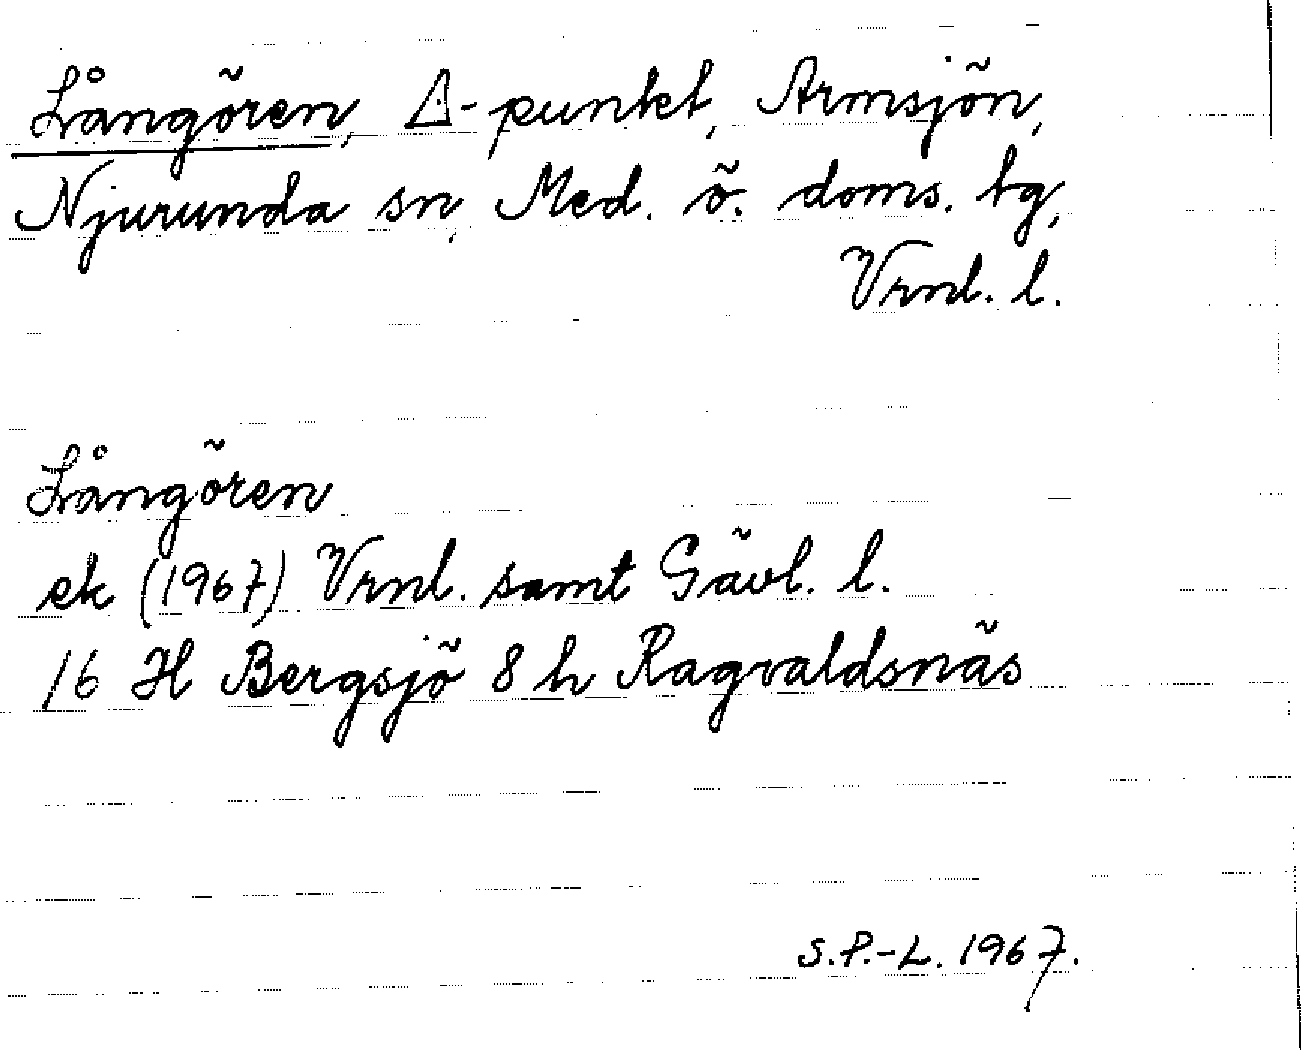 Långören, Δ-punkt, Armsjön,
Njurunda sn, Med. ö. doms. tg,
Vrnl. l.
Långören
ek (1967) Vrnl. samt Gävl. l.
16 H Bergsjö 8 h Ragvaldsnäs
S.P.-L. 1967.